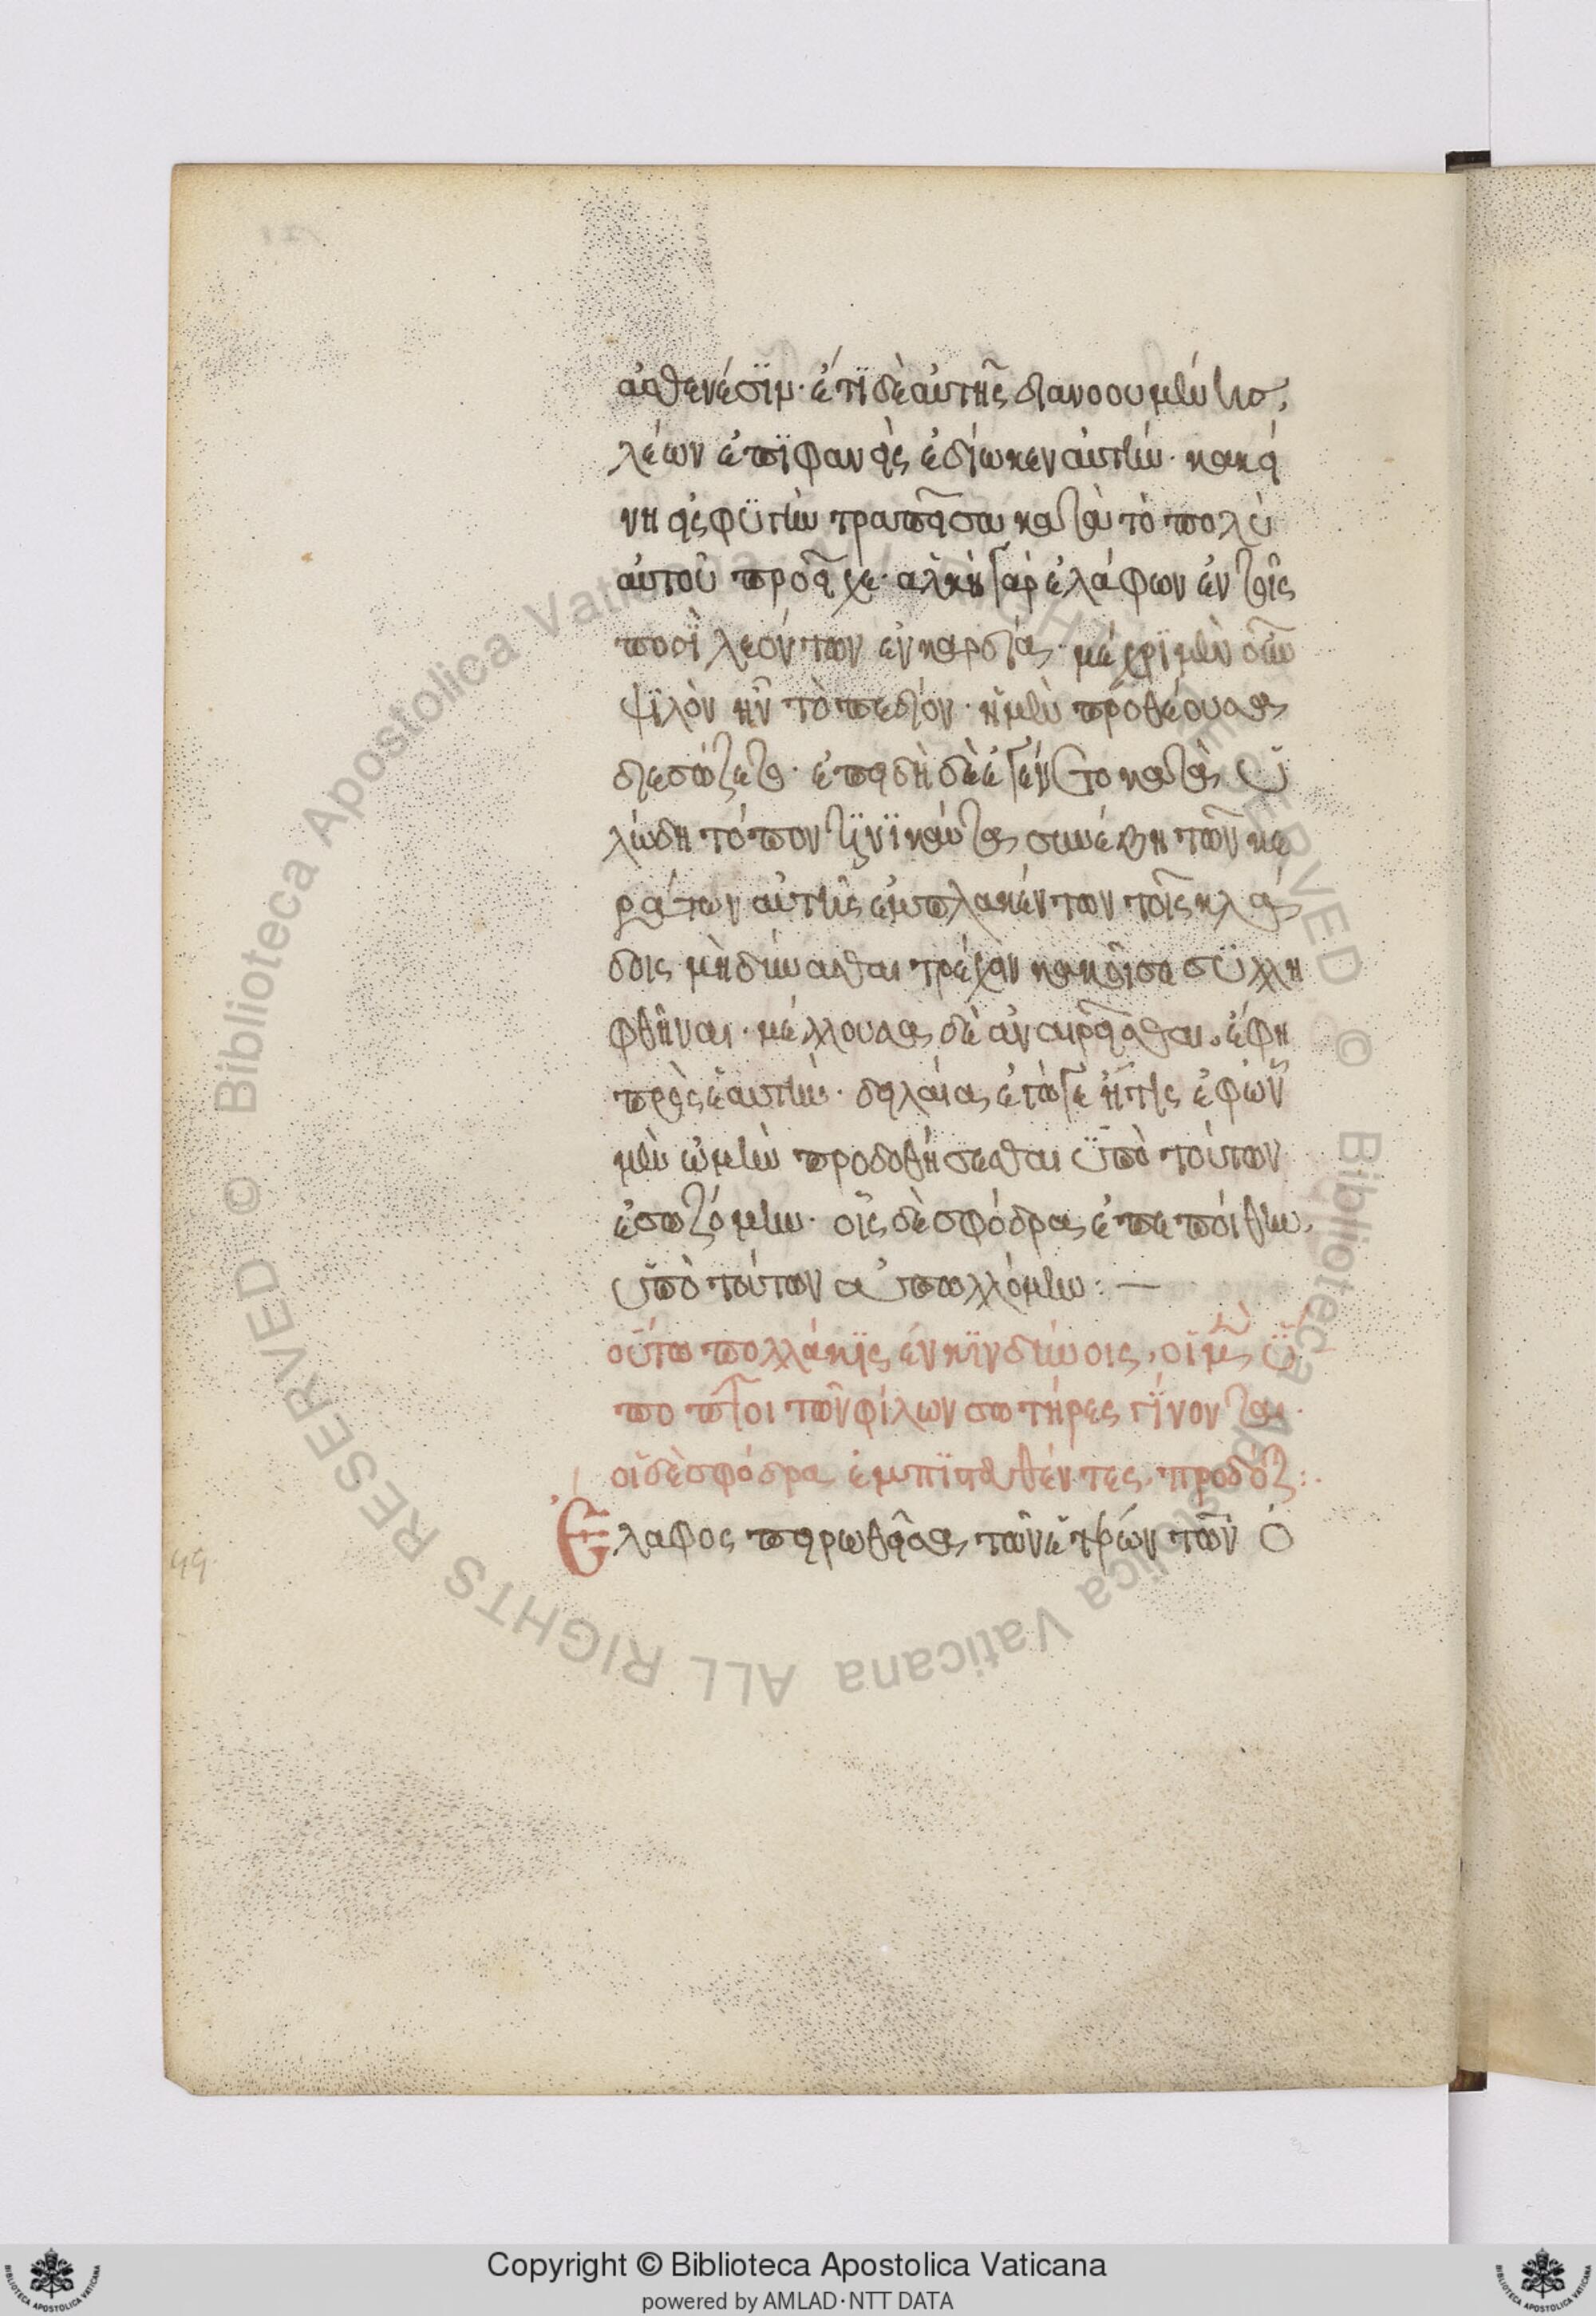 ἀσθενέσϊν· ἔτϊ δὲ αὐτῆς διανοουμένης,
λέων ἐπϊφανεὶς ἐδίωκεν αὐτήν· κακεί
νη εἰς φϋγὴν τραπεῖσα κατὰ τὸ πολὺ
αὐτοῦ προεῖχε· ἀλκὴ γὰρ ἐλάφων ἐν τοῖς
ποσὶ λεόντων ἐν καρδία· μέχρϊ μὲν οὖν
ψϊλὸν ἦν τὸ πεδίον· ἡ μὲν προθέουσα
διεσώζετο· ἐπειδὴ δὲ ἐγένετο κατὰ ὑ
λώδη τόπον τϊνϊκαῦτα συνέβη τῶν κε
ράτων αὐτῆς ἐμπλακέντων τοῖς κλά
δοις μὴ δύνασθαι τρέχειν κακεῖσε σϋλλη
φθῆναι· μέλλουσα δὲ ἀναιρεῖσθαι, ἔφη
πρὸς ἑαυτήν· δειλαία ἔγωγε ἥτις ἐφ' ὧν
μὲν ᾤμην προδοθήσεσθαι ὑπὸ τούτων
ἐσωζόμην· οἷς δὲ σφόδρα ἐπεποίθην,
ὑπὸ τούτων ἀπωλλόμην: —
οὕτω πολλάκϊς ἐν κϊνδύνοις, οἱ μὲν ὕ
ποπτοι τῶν φίλων σωτῆρες γίνονται·
οἱ δὲ σφόδρα ἐμπϊστευθέντες, προδόται:
Ἔλαφος πηρωθεῖσα τὸν ἕτερον τῶν ὀ
Copyright © Biblioteca Apostolica Vaticana
powered by AMLAD·NTT DATA